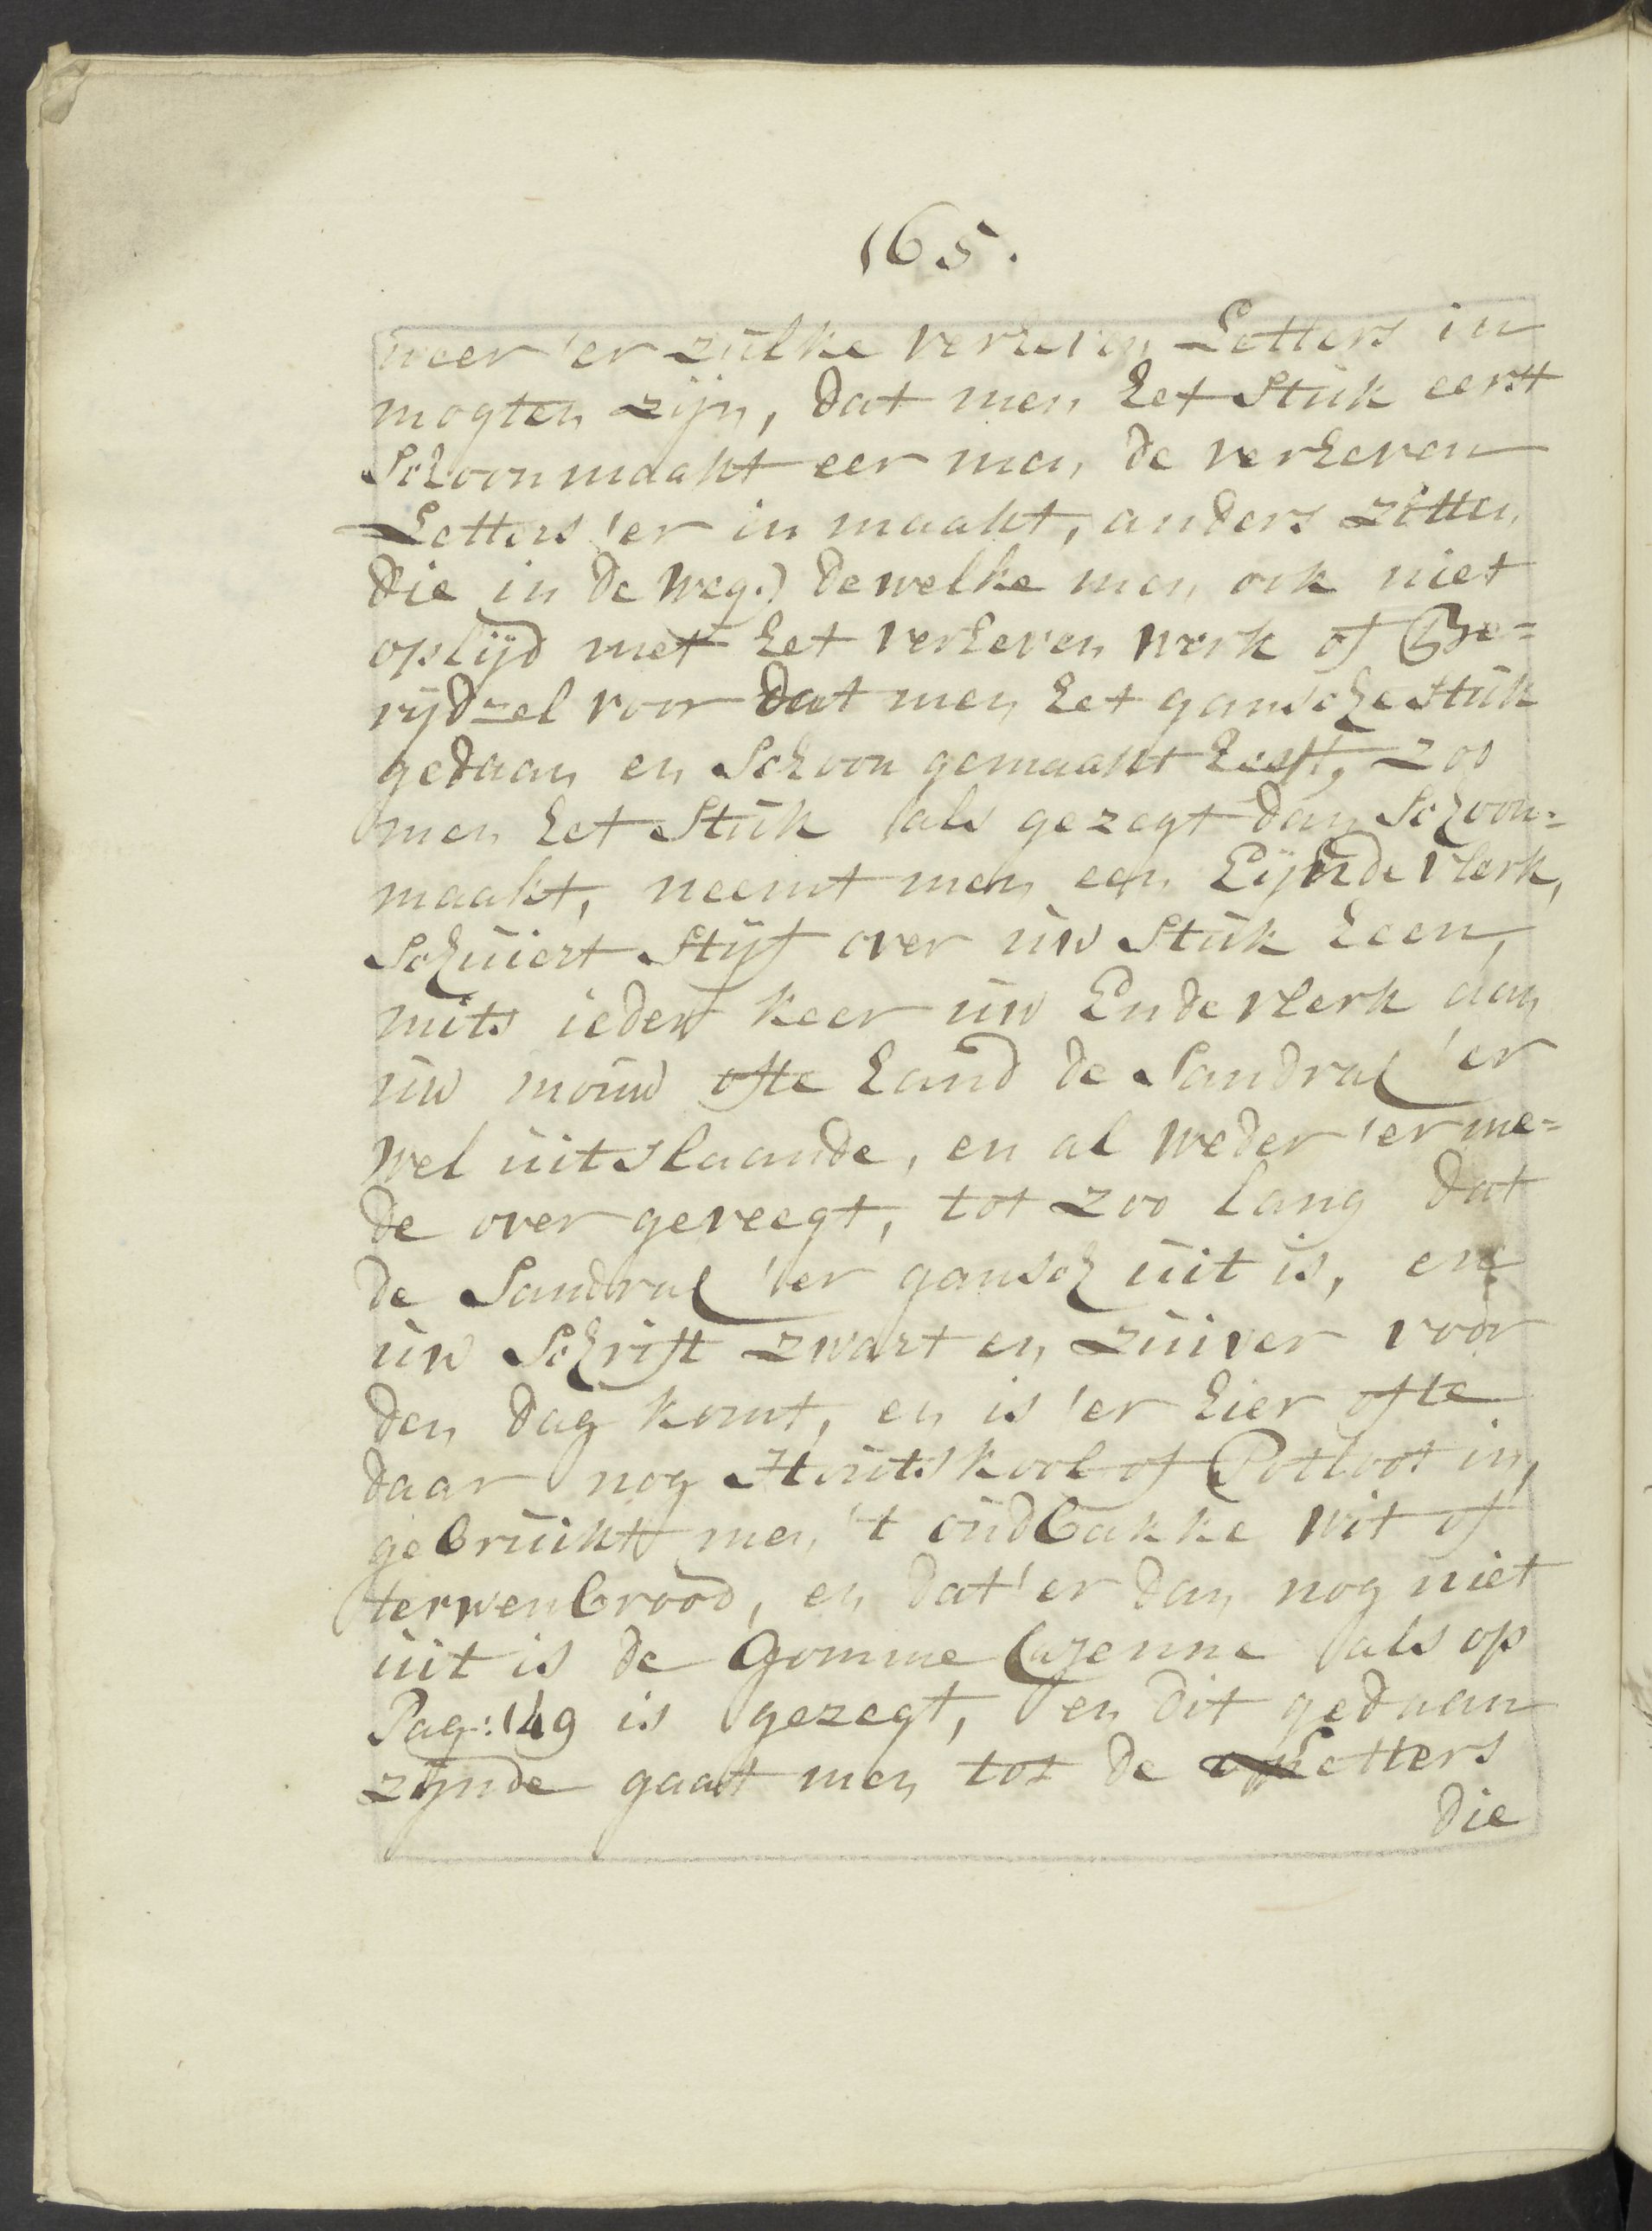 165.
neer 'er zulke verheven Letters in
mogten zijn, dat men het Stuk eerst
Schoonmaakt eer men de verheven
Letters 'er in maakt, anders zitten
die in de weg.) dewelke men ook niet
oplijd met het verheven werk of Be=
rijdzel voor dat men het gansche Stuk
gedaan en Schoon gemaakt heeft, zoo
men het Stuk als gezegt dan Schoon=
maakt, neemt men een Eijnde vlerk,
Schuiert Stijf over uw Stuk heen,
mits ieder keer uw Endevlerk aan
uw mouw ofte hand de Sandral 'er
wel uitslaande, en al weder 'er me=
de over geveegt, tot zoo lang dat
de Sandral 'er gansch uit is, en
uw Schrift zwart en zuiver voor
den dag komt, en is 'er hier ofte
daar nog Houtskool of Potloot in,
gebruikt men 't oudbakke wit of
terwenbrood, en dat 'er dan nog niet
uit is de Gomme Lazenne als op
Pag: 149 is gezegt, en dit gedaan
zijnde gaat men tot de Letters
die